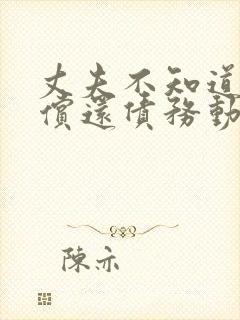 丈夫不知道
償還債務動
陳亦